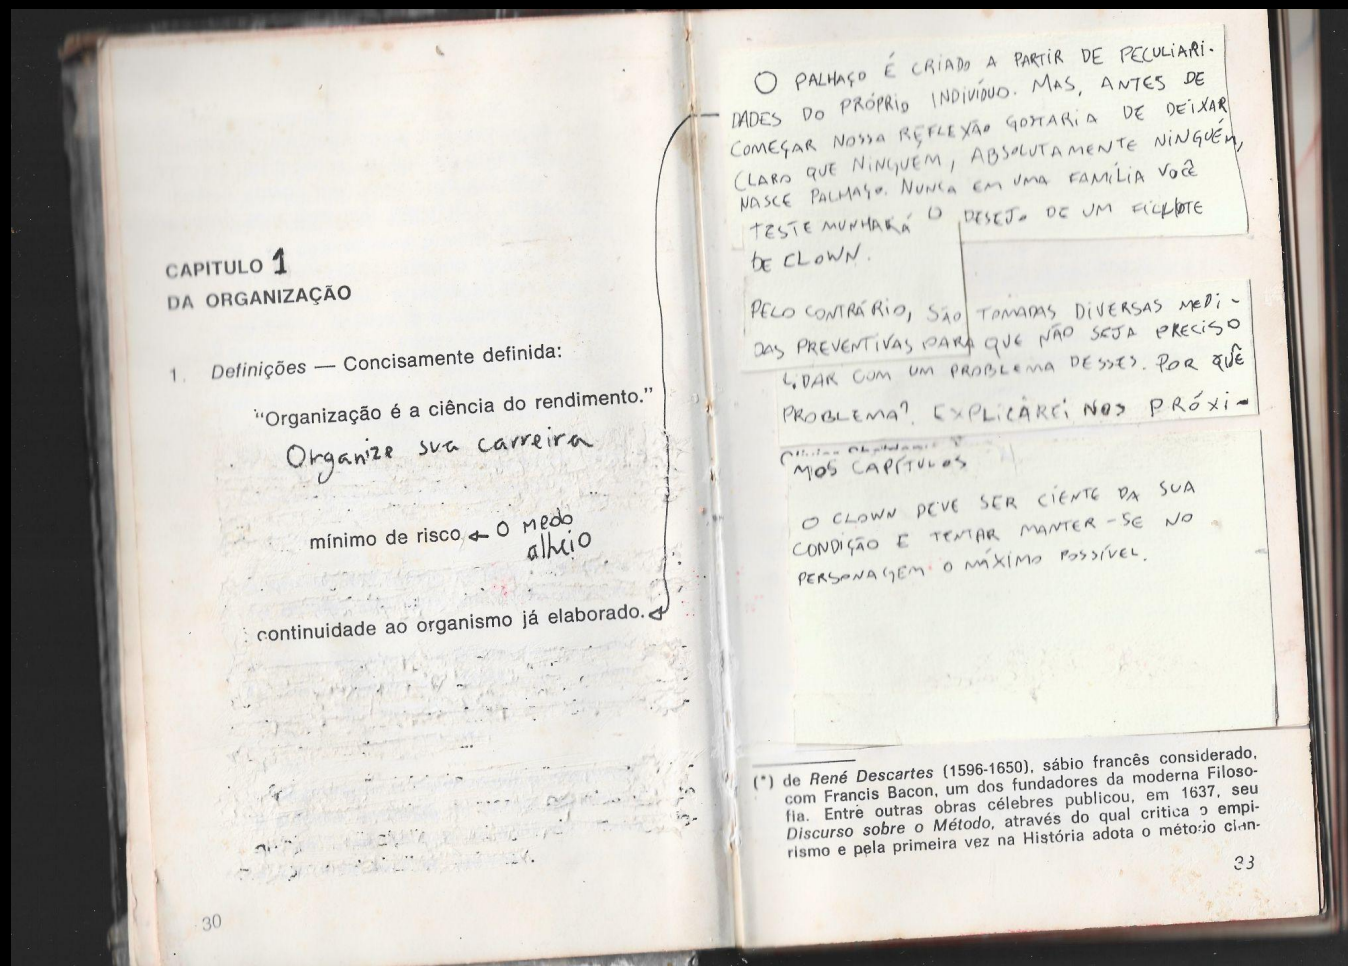 CAPITULO 1
DA ORGANIZAÇÃO
1. Definições — Concisamente definida:
“Organização é a ciência do rendimento.”
Organize sua carreira
mínimo de risco ← O medo
alheio
continuidade ao organismo já elaborado.
30
O PALHAÇO É CRIADO A PARTIR DE PECULIARI-
DADES DO PRÓPRIO INDIVÍDUO. MAS, ANTES DE
COMEÇAR NOSSA REFLEXÃO GOSTARIA DE DEIXAR
CLARO QUE NINGUEM, ABSOLUTAMENTE NINGUÉM,
NASCE PALHAÇO. NUNCA EM UMA FAMÍLIA VOCÊ
TESTEMUNHARÁ O DESEJO DE UM FILHOTE
DE CLOWN.
PELO CONTRÁRIO, SÃO TOMADAS DIVERSAS MEDI-
DAS PREVENTIVAS PARA QUE NÃO SEJA PRECISO
LIDAR COM UM PROBLEMA DESSES. POR QUÊ
PROBLEMA? EXPLICAREI NOS PRÓXI-
MOS CAPÍTULOS
O CLOWN DEVE SER CIENTE DA SUA
CONDIÇÃO E TENTAR MANTER-SE NO
PERSONAGEM O MÁXIMO POSSÍVEL.
(*) de René Descartes (1596-1650), sábio francês considerado,
com Francis Bacon, um dos fundadores da moderna Filoso-
fia. Entre outras obras célebres publicou, em 1637, seu
Discurso sobre o Método, através do qual critica o empi-
rismo e pela primeira vez na História adota o método
33